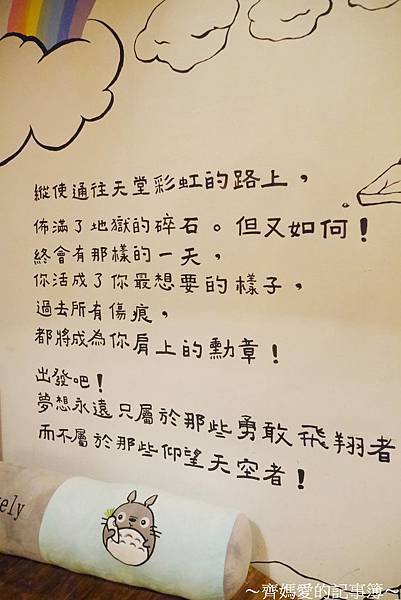 縱使通往天堂彩虹的路上，
佈滿了地獄的碎石。但又如何！
終會有那樣的一天，
你活成了你最想要的樣子，
過去所有傷痕，
都將成為你肩上的勳章！
出發吧！
夢想永遠只屬於那些勇敢飛翔者
而不屬於那些仰望天空者！
ely
～齊媽愛的記事簿～